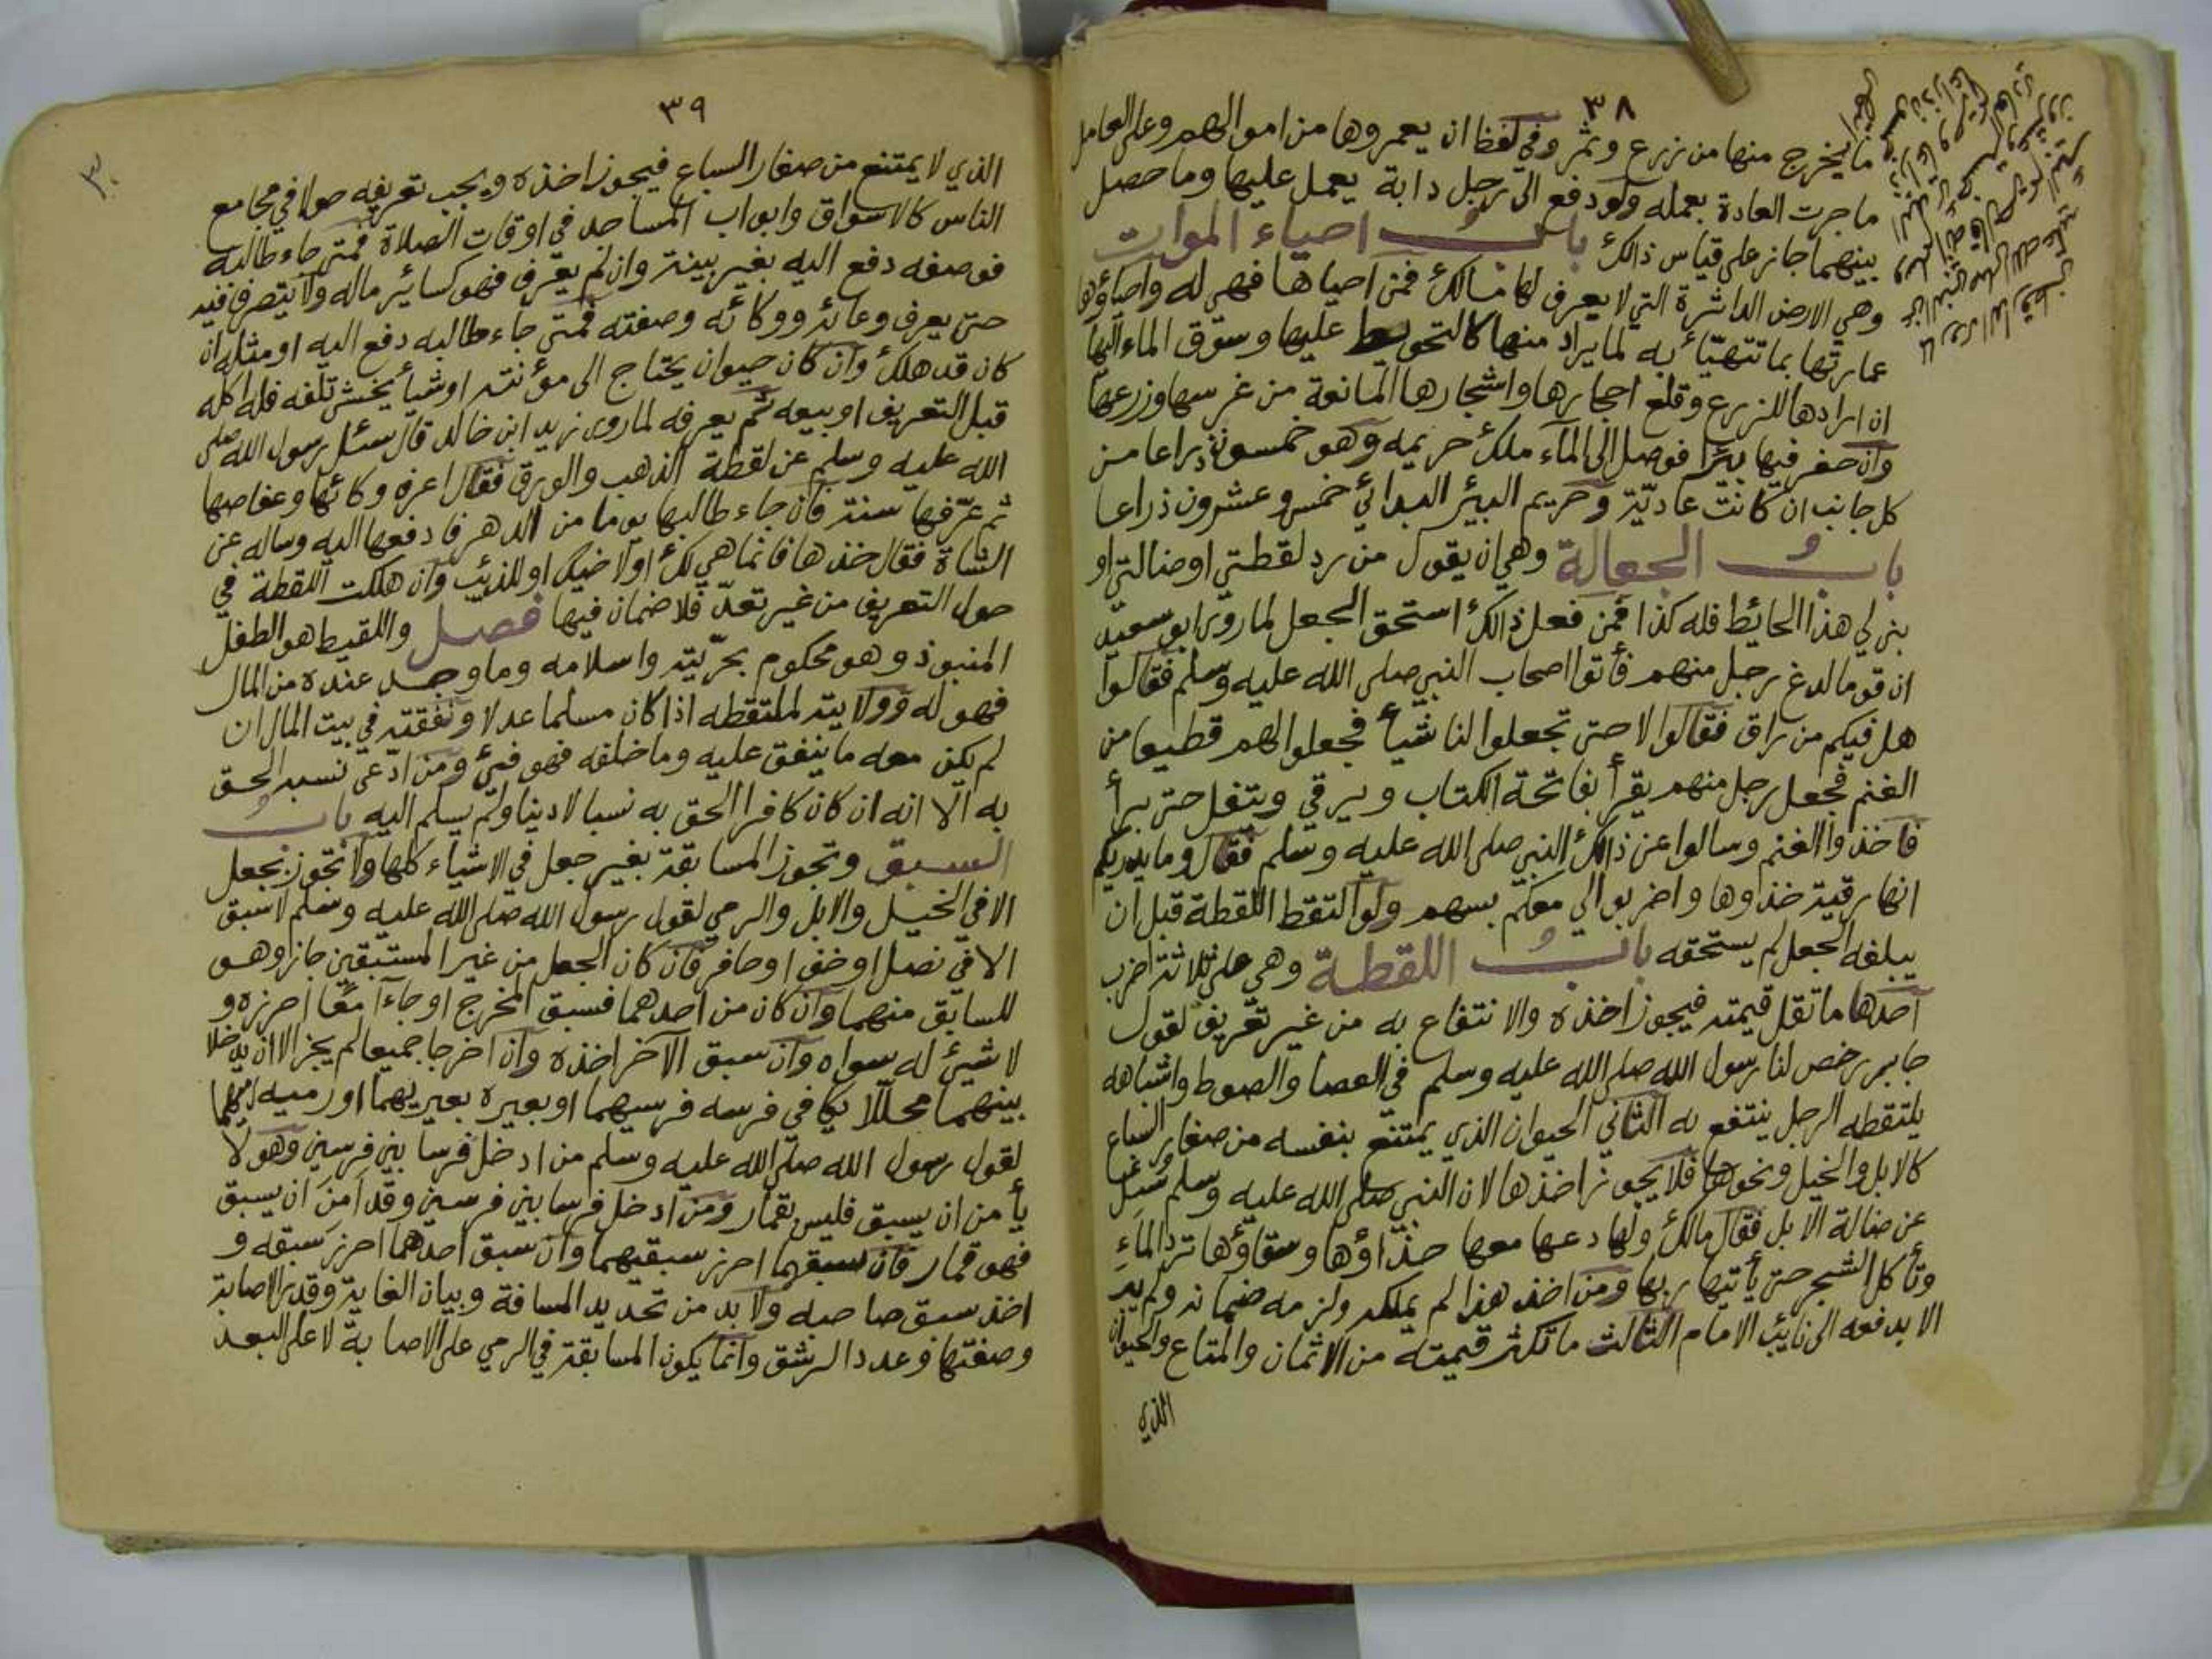 ٣٨
ما يخرج منها من زرع وثمر وفي لفظ ان يعمروها من اموالهم وعلى العامل
ما جرت العادة بعمله ولو دفع الى رجل دابة يعمل عليها وما حصل
بينهما جاز على قياس ذالك باب احياء الموات
وهي الارض الداثرة التي لا يعرف لها مالك فمن احياها فهي له واحياؤها
عمارتها بما تتهيّأ به لما يراد منها كالتحويط عليها وسوق الماء اليها
ان ارادها للزرع وقلع احجارها واشجارها المانعة من غرسها وزرعها
وان حفر فيها بئرا فوصل الى الماء ملك حريمه وهو خمسون ذراعا من
كل جانب ان كانت عاديّة وحريم البئر البدائي خمس وعشرون ذراعا
باب الجعالة وهي ان يقول من رد لقطتي او ضالتي او
بنى لي هذا الحائط فله كذا فمن فعل ذالك استحق الجعل لما روى ابو سعيد
ان قوما لدغ رجل منهم فأتوا اصحاب النبي صلى الله عليه وسلم فقالوا
هل فيكم من راق فقالوا لا حتى تجعلوا لنا شيأ فجعلوا لهم قطيعا من
الغنم فجعل رجل منهم يقرأ بفاتحة الكتاب ويرقي ويتفل حتى برأ
فاخذوا الغنم وسالوا عن ذالك النبي صلى الله عليه وسلم فقال وما يدريكم
انها رقية خذاوها واضربوا لي معكم بسهم ولو التقط اللقطة قبل ان
يبلغه الجعل لم يستحقه باب اللقطة وهي على ثلاثة اضرب
احدها ما تقل قيمته فيجوز اخذه والانتفاع به من غير تعريف لقول
جابر رخص لنا رسول الله صلى الله عليه وسلم في العصا والصوط واشباهه
يلتقطه الرجل ينتفع به الثاني الحيوان الذي يمتنع بنفسه من صغار السباع
كالابل والخيل ونحوها فلا يجوز اخذها لان النبي صلى الله عليه وسلم سئل
عن ضالة الابل فقال مالك ولها دعها معها حذاؤها وسقاؤها ترد الماء
وتأكل الشجر حتى يأتيها ربها ومن اخذ هذا لم يملكه ولزمه ضمانه ولم يبر
الا بدفعه الى نائب الامام الثالث ما تكثر قيمته من الاثمان والمتاع والحيوان
الذي
٣٩
الذي لا يمتنع من صغار السباع فيجوز اخذه ويجب تعريفه حولا في مجامع
الناس كالاسواق وابواب المساجد في اوقات الصلاة فمتى جاء طالبه
فوصفه دفع اليه بغير بينة وان لم يعرف فهو كسائر ماله ولا يتصرف فيه
حتى يعرف وعائه ووكائه وصفته فمتى جاء طالبه دفع اليه او مثله ان
كان قد هلك وان كان حيوان يحتاج الى مؤنته او شيأ يخشى تلفه فله اكله
قبل التعريف او بيعه ثم يعرفه لما روى زيد ابن خالد قال سئل رسول الله صلى
الله عليه وسلم عن لقطة الذهب والورق فقال اعرف وكائها وعفاصها
ثم عرّفها سنة فان جاء طالبها يوما من الدهر فادفعها اليه وساله عن
الشاة فقال خذها فانما هي لك او لاخيك او للذئب وان هلكت اللقطة في
حول التعريف من غير تعدّ فلا ضمان فيها فصل واللقيط هو الطفل
المنبوذ وهو محكوم بحرّيته واسلامه وما وجد عنده من المال
فهو له وولايته لملتقطه اذا كان مسلما عدلا ونفقته في بيت المال ان
لم يكن معه ما ينفق عليه وما خلفه فهو فئ ومن ادّعى نسبه الحق
به الا انه ان كان كافرا الحق به نسبا لا دينا ولم يسلم اليه باب
السبق وتجوز المسابقة بغير جعل في الاشياء كلها ولا تجوز بجعل
الا في الخيل والابل والرمي لقول رسول الله صلى الله عليه وسلم لا سبق
الا في نصل او خف او حافر فان كان الجعل من غير المستبقين جاز وهو
للسابق منهما وان كان من احدهما فسبق المخرج او جاءا معًا احرزه و
لا شيئ له سواه وان سبق الآخر اخذه وان اخرجا جميعا لم يجز الا ان يدخلا
بينهما محللا يكافي فرسه فرسيهما او بعيره بعيريهما او رميه رميهما
لقول رسول الله صلى الله عليه وسلم من ادخل فرسا بين فرسين وهو لا
يأمن ان يسبق فليس بقمار ومن ادخل فرسا بين فرسين وقد امن ان يسبق
فهو قمار فان سبقهما احرز سبقيهما وان سبق احدهما احرز سبقه و
اخذ سبق صاحبه ولا بد من تحديد المسافة وبيان الغاية وقدر الاصابة
وصفتها وعدد الرشق وانما يكون المسابقة في الرمي على الاصابة لا على البعد